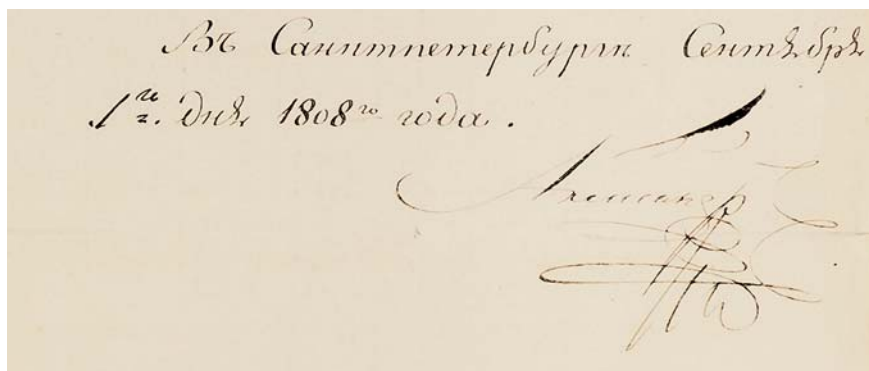 Въ Санктпетербургѣ Сентября
1го. дня 1808го года.
Александръ